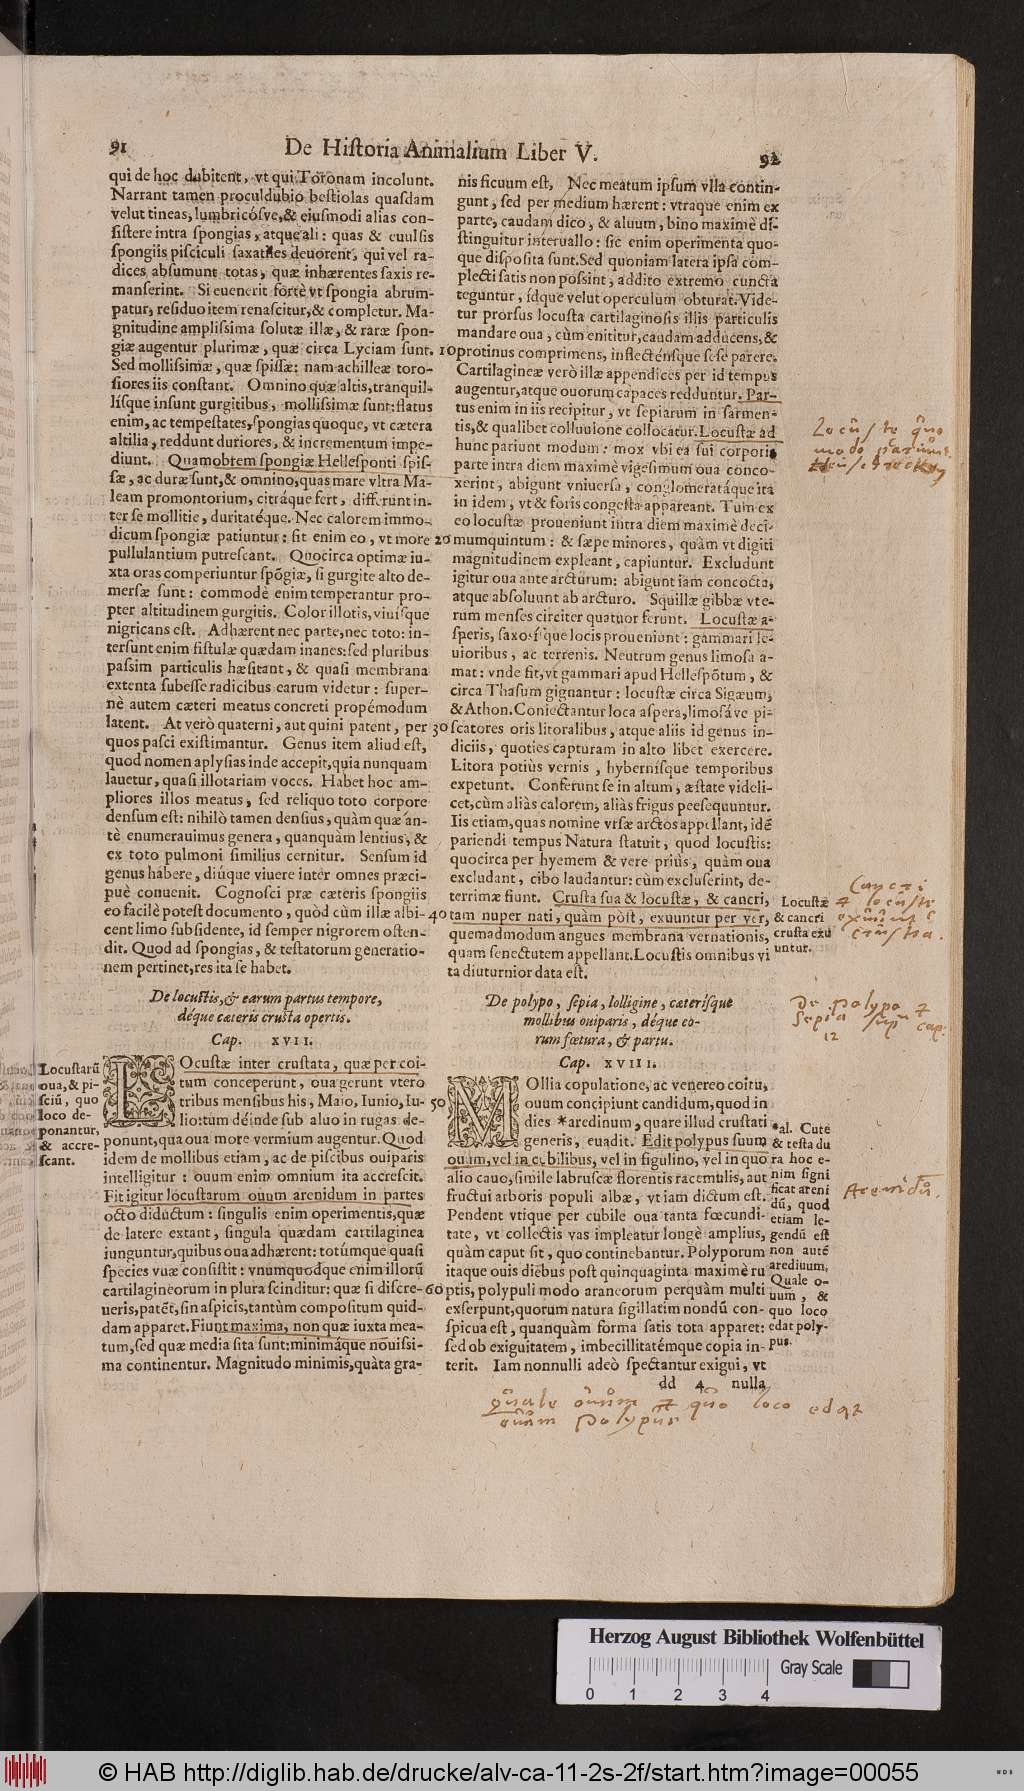 91
De Hiſtoria Animalium Liber V.
92
qui de hoc dubitent, vt qui Toronam incolunt.
Narrant tamen proculdubio beſtiolas quaſdam
velut tineas, lumbricóſve, & eiuſmodi alias con-
ſiſtere intra ſpongias, atque ali: quas & euulſis
ſpongiis piſciculi ſaxatiles deuorent, qui vel ra-
dices abſumunt totas, quæ inhærentes ſaxis re-
manſerint. Si euenerit fortè vt ſpongia abrum-
patur, reſiduo item renaſcitur, & completur. Ma-
gnitudine ampliſsima ſolutæ illæ, & raræ ſpon-
giæ augentur plurimæ, quæ circa Lyciam ſunt.
Sed molliſsimæ, quæ ſpiſſæ: nam achilleæ toro-
ſiores iis conſtant. Omnino quæ altis, tranquil-
líſque inſunt gurgitibus, molliſsimæ ſunt: flatus
enim, ac tempeſtates, ſpongias quoque, vt cætera
altilia, reddunt duriores, & incrementum impe-
diunt. Quamobrem ſpongiæ Helleſponti ſpiſ-
ſæ, ac duræ ſunt, & omnino, quas mare vltra Ma-
leam promontorium, citráque fert, differunt in-
ter ſe mollitie, duritatéque. Nec calorem immo-
dicum ſpongiæ patiuntur: ſit enim eo, vt more
pullulantium putreſcant. Quocirca optimæ iu-
xta oras comperiuntur ſpōgiæ, ſi gurgite alto de-
merſæ ſunt: commodè enim temperantur pro-
pter altitudinem gurgitis. Color illotis, viuiſque
nigricans eſt. Adhærent nec parte, nec toto: in-
terſunt enim fiſtulæ quædam inanes: ſed pluribus
paſsim particulis hæſitant, & quaſi membrana
extenta ſubeſſe radicibus earum videtur: ſuper-
nè autem cæteri meatus concreti propémodum
latent. At verò quaterni, aut quini patent, per
quos paſci exiſtimantur. Genus item aliud eſt,
quod nomen aplyſias inde accepit, quia nunquam
lauetur, quaſi illotariam voces. Habet hoc am-
pliores illos meatus, ſed reliquo toto corpore
denſum eſt: nihilò tamen denſius, quàm quæ án-
tè enumerauimus genera, quanquàm lentius, &
ex toto pulmoni ſimilius cernitur. Senſum id
genus habere, diúque viuere inter omnes præci-
puè conuenit. Cognoſci præ cæteris ſpongiis
eo facilè poteſt documento, quòd cùm illæ albi-
cent limo ſubſidente, id ſemper nigrorem oſten-
dit. Quod ad ſpongias, & teſtatorum generatio-
nem pertinet, res ita ſe habet.
De locuſtis, & earum partus tempore,
déque cæteris cruſta opertis.
Cap. XVII.
Locuſtarū
oua, & pi-
ſciū, quo
loco de-
ponantur,
& accre-
ſcant.
LOcuſtæ inter cruſtata, quæ per coi-
tum conceperunt, oua gerunt vtero
tribus menſibus his, Maio, Iunio, Iu-
lio: tum déinde ſub aluo in rugas de-
ponunt, qua oua more vermium augentur. Quod
idem de mollibus etiam, ac de piſcibus ouiparis
intelligitur: ouum enim omnium ita accreſcit.
Fit igitur locuſtarum ouum arenidum in partes
octo diductum: ſingulis enim operimentis, quæ
de latere extant, ſingula quædam cartilaginea
iunguntur, quibus oua adhærent: totúmque quaſi
ſpecies vuæ conſiſtit: vnumquodque enim illorū
cartilagineorum in plura ſcinditur: quæ ſi diſcre-
ueris, patēt, ſin aſpicis, tantùm compoſitum quid-
dam apparet. Fiunt maxima, non quæ iuxta mea-
tum, ſed quæ media ſita ſunt: minimáque nouiſsi-
ma continentur. Magnitudo minimis, quāta gra-
10
20
30
40
50
60
nis ficuum eſt, Nec meatum ipſum vlla contin-
gunt, ſed per medium hærent: vtraque enim ex
parte, caudam dico, & aluum, bino maximè di-
ſtinguitur interuallo: ſic enim operimenta quo-
que diſpoſita ſunt. Sed quoniam latera ipſa com-
plecti ſatis non poſsint, addito extremo cuncta
teguntur, idque velut operculum obturat. Vide-
tur prorſus locuſta cartilaginoſis illis particulis
mandare oua, cùm enititur, caudam adducens, &
protinus comprimens, inflecténſque ſeſe parere.
Cartilagineæ verò illæ appendices per id tempus
augentur, atque ouorum capaces redduntur. Par-
tus enim in iis recipitur, vt ſepiarum in ſarmen-
tis, & qualibet colluuione collocatur. Locuſtæ ad
hunc pariunt modum: mox vbi ea ſui corporis
parte intra diem maximè vigeſimum oua conco-
xerint, abigunt vniuerſa, conglomeratáque ita
in idem, vt & foris congeſta appareant. Tum ex
eo locuſtæ proueniunt intra diem maximè deci-
mumquintum: & ſæpe minores, quàm vt digiti
magnitudinem expleant, capiuntur. Excludunt
igitur oua ante arcturum: abigunt iam concocta,
atque abſoluunt ab arcturo. Squillæ gibbæ vte-
rum menſes circiter quatuor ferunt. Locuſtæ a-
ſperis, ſaxoſiſque locis proueniunt: gammari le-
uioribus, ac terrenis. Neutrum genus limoſa a-
mat: vnde fit, vt gammari apud Helleſpōtum, &
circa Thaſum gignantur: locuſtæ circa Sigæum,
& Athon. Coniectantur loca aſpera, limoſáve pi-
ſcatores oris litoralibus, atque aliis id genus in-
diciis, quoties capturam in alto libet exercere.
Litora potiùs vernis, hyberníſque temporibus
expetunt. Conferunt ſe in altum, æſtate videli-
cet, cùm aliàs calorem, aliàs frigus peeſequuntur.
Iis etiam, quas nomine vrſæ arctos appellant, idē
pariendi tempus Natura ſtatuit, quod locuſtis:
quocirca per hyemem & vere priùs, quàm oua
excludant, cibo laudantur: cùm excluſerint, de-
terrimæ fiunt. Cruſta ſua & locuſtæ, & cancri,
tam nuper nati, quàm pòſt, exuuntur per ver,
quemadmodum angues membrana vernationis,
quam ſenectutem appellant. Locuſtis omnibus vi
ta diuturnior data eſt.
Locuſtæ
& cancri
cruſta exu
untur.
De polypo, ſepia, lolligine, cæteriſque
mollibus ouiparis, déque eo-
rum fœtura, & partu.
Cap. XVIII.
MOllia copulatione, ac venereo coitu,
ouum concipiunt candidum, quod in
dies *aredinum, quare illud cruſtati
generis, euadit. Edit polypus ſuum
ouum, vel in cubilibus, vel in figulino, vel in quo
alio cauo, ſimile labruſcæ florentis racemulis, aut
fructui arboris populi albæ, vt iam dictum eſt.
Pendent vtique per cubile oua tanta fœcundi-
tate, vt collectis vas impleatur longè amplius,
quàm caput ſit, quo continebantur. Polyporum
itaque ouis diebus poſt quinquaginta maximè ru
ptis, polypuli modo araneorum perquàm multi
exſerpunt, quorum natura ſigillatim nondū con-
ſpicua eſt, quanquàm forma ſatis tota apparet:
ſed ob exiguitatem, imbecillitatémque copia in-
terit. Iam nonnulli adeò ſpectantur exigui, vt
dd 4 nulla
*al. Cute
& teſta du
ra hoc e-
nim ſigni
ficat areni
dū, quod
etiam le-
gendū eſt
non autē
arediuum,
Quale o-
uum, &
quo loco
edat poly-
pus.
Locuſte quo
modo pariunt
Cancri
& locuſte
exuunt
cruſta.
De polypo &
Sepia ſup cap.
12
Arenidū.
quale ouum & quo loco edat
ouum polypus
Herzog August Bibliothek Wolfenbüttel
Gray Scale
0 1 2 3 4
© HAB http://diglib.hab.de/drucke/alv-ca-11-2s-2f/start.htm?image=00055